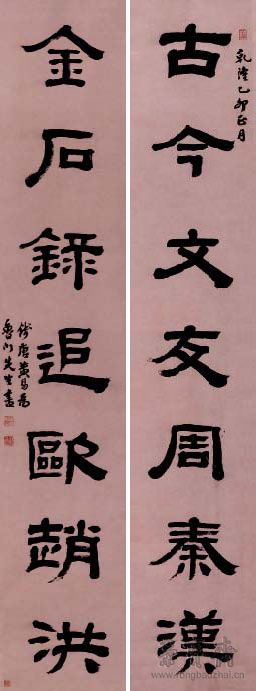 乾隆乙卯正月
古今文友周秦漢
金石錄追歐趙洪
錢唐黃易為
魯门先生書
www.rongbaozhai.cn